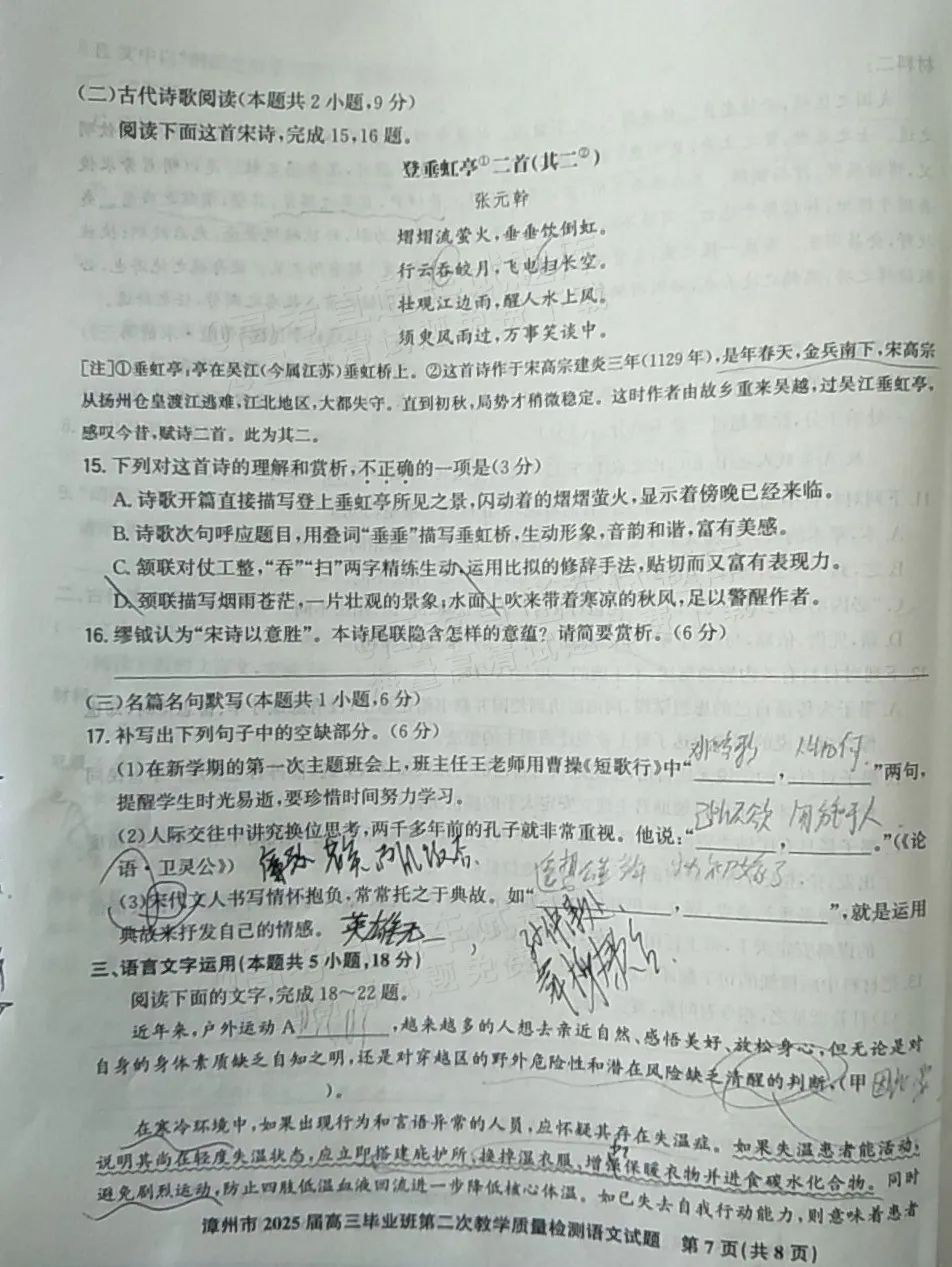 (二)古代诗歌阅读(本题共2小题,9分)
阅读下面这首宋诗,完成15,16题。
登垂虹亭①二首(其二②)
张元幹
熠熠流萤火,垂垂饮倒虹。
行云吞皎月,飞电扫长空。
壮观江边雨,醒人水上风。
须臾风雨过,万事笑谈中。
[注]①垂虹亭,亭在吴江(今属江苏)垂虹桥上。②这首诗作于宋高宗建炎三年(1129年),是年春天,金兵南下,宋高宗
从扬州仓皇渡江逃难,江北地区,大都失守。直到初秋,局势才稍微稳定。这时作者由故乡重来吴越,过吴江垂虹亭,
感叹今昔,赋诗二首。此为其二。
15.下列对这首诗的理解和赏析,不正确的一项是(3分)
A.诗歌开篇直接描写登上垂虹亭所见之景,闪动着的熠熠萤火,显示着傍晚已经来临。
B.诗歌次句呼应题目,用叠词“垂垂”描写垂虹桥,生动形象,音韵和谐,富有美感。
C.颔联对仗工整,“吞”“扫”两字精练生动,运用比拟的修辞手法,贴切而又富有表现力。
D.颈联描写烟雨苍茫,一片壮观的景象;水面上吹来带着寒凉的秋风,足以警醒作者。
16.缪钺认为“宋诗以意胜”。本诗尾联隐含怎样的意蕴?请简要赏析。(6分)
(三)名篇名句默写(本题共1小题,6分)
17.补写出下列句子中的空缺部分。(6分)
(1)在新学期的第一次主题班会上,班主任王老师用曹操《短歌行》中“,人生几何”两句,
提醒学生时光易逝,要珍惜时间努力学习。
(2)人际交往中讲究换位思考,两千多年前的孔子就非常重视。他说:“己所不欲,勿施于人。”(《论
语·卫灵公》)
(3)宋代文人书写情怀抱负,常常托之于典故。如“遥想公瑾,小乔初嫁了”,就是运用
典故来抒发自己的情感。英雄无
三、语言文字运用(本题共5小题,18分)
阅读下面的文字,完成18~22题。
近年来,户外运动A,越来越多的人想去亲近自然、感悟美好、放松身心,但无论是对
自身的身体素质缺乏自知之明,还是对穿越区的野外危险性和潜在风险缺乏清醒的判断,(甲
)。
在寒冷环境中,如果出现行为和言语异常的人员,应怀疑其存在失温症。如果失温患者能活动,
说明其尚在轻度失温状态,应立即搭建庇护所、换掉湿衣服、增强保暖衣物并进食碳水化合物。同时
避免剧烈运动,防止四肢低温血液回流进一步降低核心体温。如已失去自我行动能力,则意味着患者
漳州市2025届高三毕业班第二次教学质量检测语文试题 第7页(共8页)